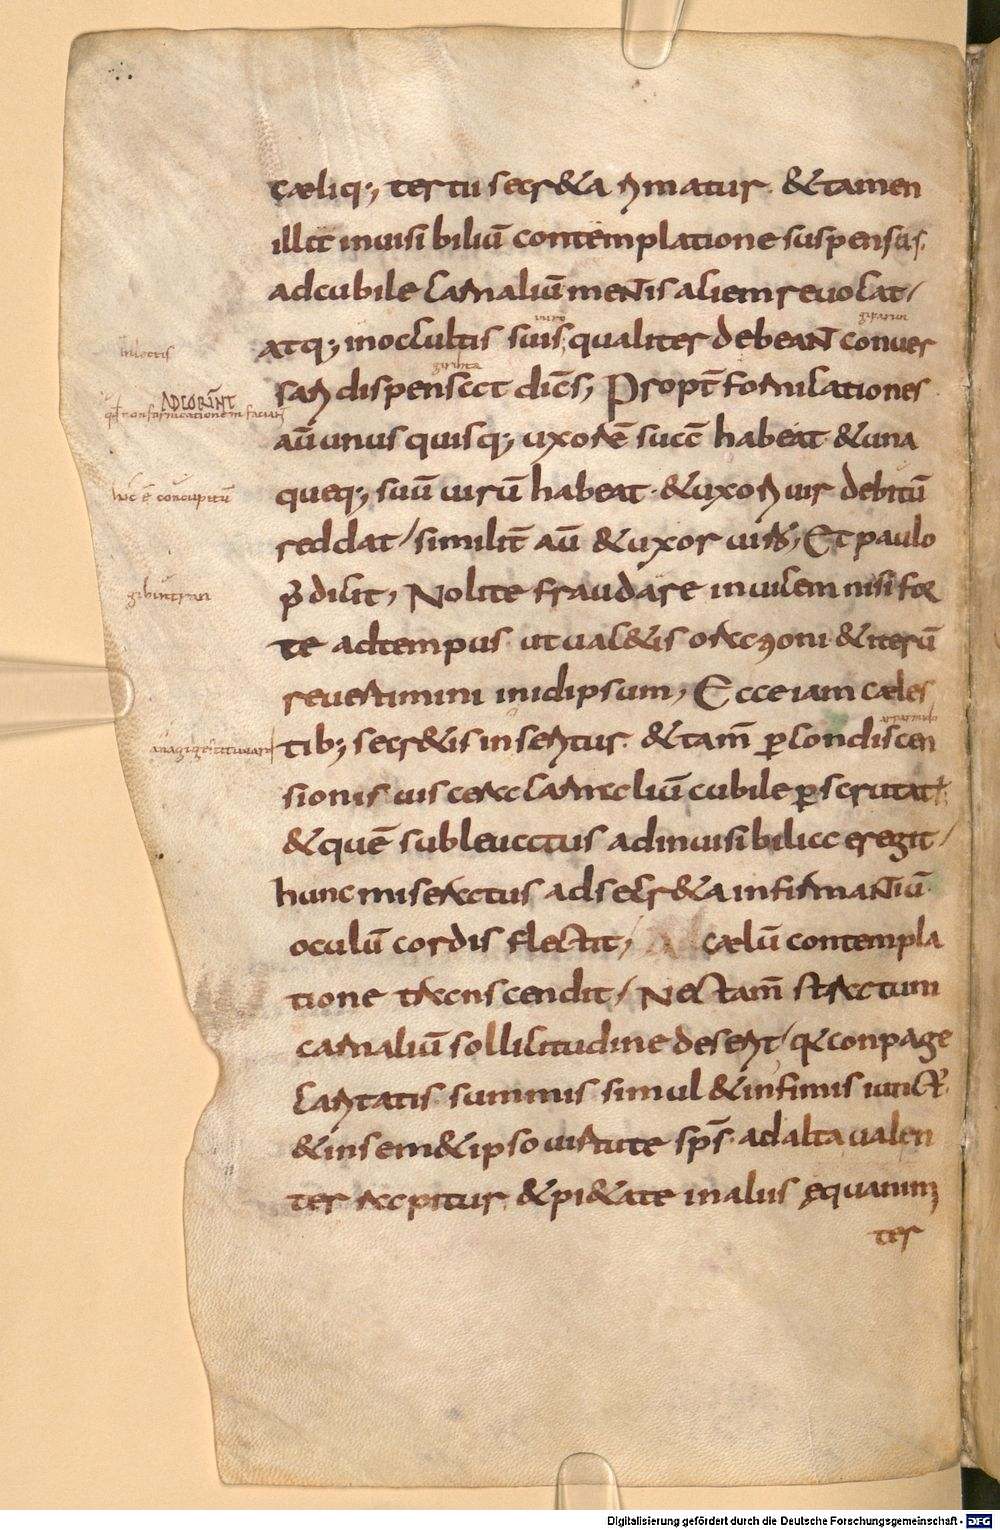 cæliq; tertii secr&a rimatur. &tamen
illa inuisibiliū contemplatione suspensus.
adcubile carnaliū mentis aciem reuocat/
uuro
girarun
atq; inoccultis suis; qualiter debeant conuer
In loctis
girihta
sari dispensat dicēs; Propt̄ fornicationes
ADCORINT
qđ non fornicationem faciant
aū unus quisq; uxorē suā habeat. &una
queq; suū uirū habeat. &uxori uir debitū
hoc ē concupitū
reddat/similit̄ aū &uxor uiro; Et paulo
p̄ dicit, Nolite fraudare inuicem nisi for
te adtempus. ut uac&is orationi. &iterū
reuertimini inidipsum, Ecce iam cæles
tib; secr&is inseritur. &tam̄ p condiscen
sionis uiscera carnaliū cubile pscrutat.
&quē subleuatus adinuisibilia eregit/
hunc miseratus adsecr&a infirmantiū
oculū cordis flectit/ cælū contempla
tione transcendit/ Nec tam̄ stratum
carnaliū sollicitudine deserit/ q conpage
caritatis. summis simul &infimis iunct'.
&insem&ipso uirtute sp̄s. adalta ualen
ter rapitur. &pi&ate inaliis ęquanim
ter
Digitalisierung gefördert durch die Deutsche Forschungsgemeinschaft - DFG